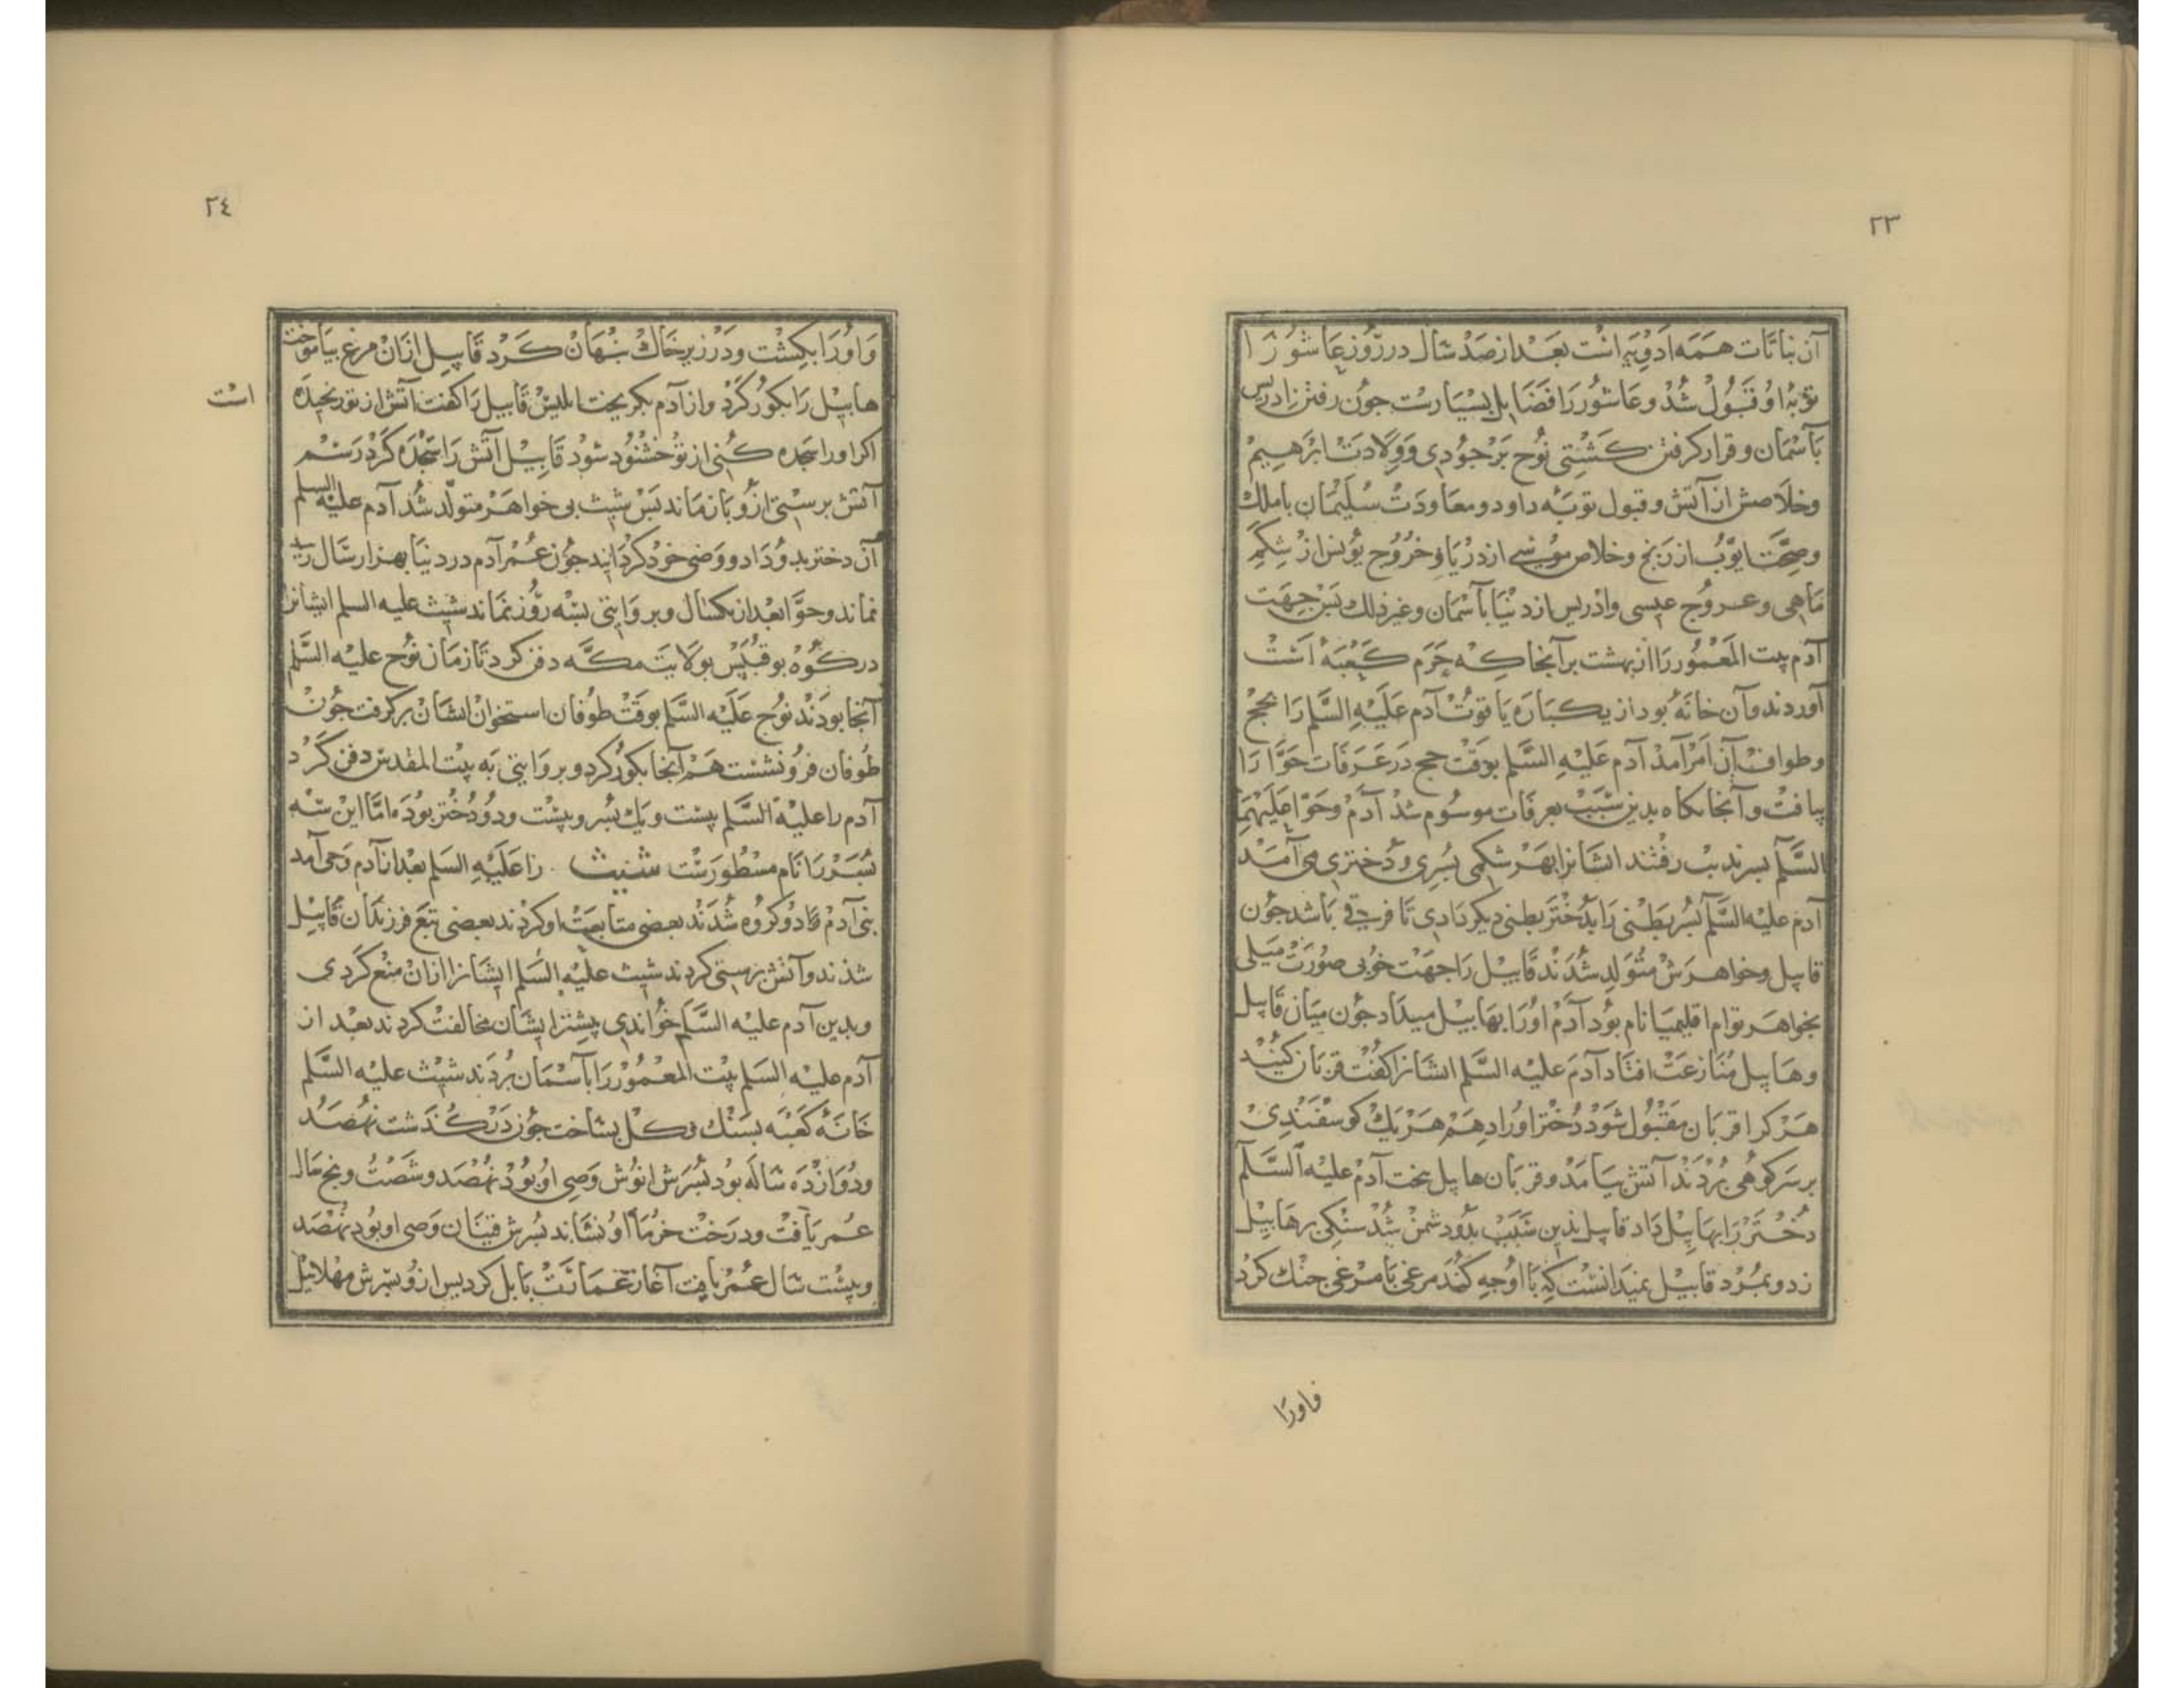 ٢٣
آن نباتات همه ادویه است بعد از صد سال در روز عاشورا
توبهٔ او قبول شد و عاشور را فضایل بسیارست جون رفتن ادریس
بآسمان و قرار کرفتن کشتی نوح بر جودی و ولادت ابرهیم
وخلاصش از آتش و قبول توبه داود و معاودت سلیمان باملک
وصحّت ایّوب از رنج و خلاص موسی از دریا و خروج یونس از شکم
ماهی و عروج عیسی وادریس از دنیا بآسمان وغیر ذلک بس جهت
آدم بیت المعمور را از بهشت بر آنجا که حرم کعبه است
آوردند و آن خانه بود از یکباره یاقوت آدم علیه السّلم را بحج
وطواف آن امر آمد آدم علیه السّلم بوقت حج در عرفات حوّا را
بیافت و آنجایکاه بدین سبب بعرفات موسوم شد آدم وحوّا علیهما
السّلم بسرندیب رفتند ایشانرا بهر شکمی بسری و دختری می آمد
آدم علیه السّلم بسر بطنی را بدختر بطنی دیکر دادی تا فرقی باشد جون
قابیل وخواهرش متولد شدند قابیل را جهت خوبی صورت میلی
بخواهر توام اقلیمیا نام بود آدم اورا بهابیل میداد جون میان قابیل
وهابیل منازعت افتاد آدم علیه السّلم ایشانرا کفت قربان کنید
هر کرا قربان مقبول شود دختر اورا دهم هر یک کوسفندی
بر سر کوهی بردند آتش بیامد و قربان هابیل بسخت آدم علیه السّلم
دختر را بهابیل داد قابیل بدین سبب بدو دشمن شد سنکی بر هابیل
زد و بمرد قابیل نمیدانست که با او جه کند مرغی با مرغی جنک کرد
واورا
٢٤
واورا بکشت ودر زیر خاک بنهان کرد قابیل ازان مرغ بیاموخت
هابیل را بکور کرد و از آدم بکریخت ابلیس قابیل را کفت آتش از تو رنجیده
است
اکر اورا سجده کنی از تو خشنود شود قابیل آتش را سجده کرد رسم
آتش برستی ازو بازماند بس شیث بی خواهر متولّد شد آدم علیه السلم
آن دختر بدو داد و وصی خود کردانید جون عمر آدم در دنیا بهزار سال رسید
نماند و حوّا بعد از یکسال و بروایتی بسه روز نماند شیث علیه السلم ایشانرا
در کوه بوقبیس بولایت مکّه دفن کرد تا زمان نوح علیه السّلم
آنجا بودند نوح علیه السّلم بوقت طوفان استخوان ایشان برکرفت جون
طوفان فرو نشست هم آنجا بکور کرد و بروایتی به بیت المقدس دفن کرد
آدم را علیه السّلم بیست ویک بسر و بیست و دو دختر بود اما این سه
بسر را نام مسطورست شیث را علیه السلم بعد از آدم وحی آمد
بنی آدم دو کروه شدند بعضی متابعت او کردند بعضی تبع فرزندان قابیل
شدند و آتش برستی کردند شیث علیه السلم ایشانرا ازان منع کردی
وبدین آدم علیه السّلم خواندی بیشتر ایشان مخالفت کردند بعد از
آدم علیه السلم بیت المعمور را بآسمان بردند شیث علیه السّلم
خانهٔ کعبه بسنک و کل بساخت جون در کذشت نهصد
ودوازده ساله بود بسرش انوش وصی او بود نهصد و شصت و بنج سال
عمر یافت ودرخت خرما او نشاند بسرش قینان وصی او بود نهصد
وبیست سال عمر یافت آغاز عمارت بابل کرد بس ازو بسرش مهلائیل